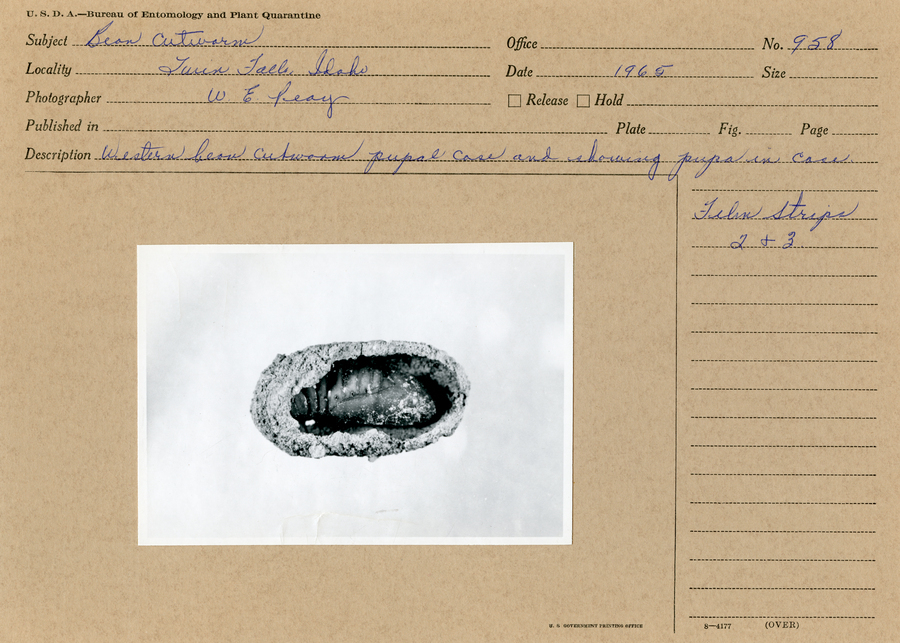 U. S. D. A.—Bureau of Entomology and Plant Quarantine
Subject Bean Cutworm Office No. 958
Locality Twin Falls Idaho Date 1965 Size
Photographer W E Peay Release Hold
Published in Plate Fig. Page
Description Western bean cutworm pupal case and showing pupa in case
Film Strips
2 + 3
U. S. GOVERNMENT PRINTING OFFICE 8—4177 (OVER)